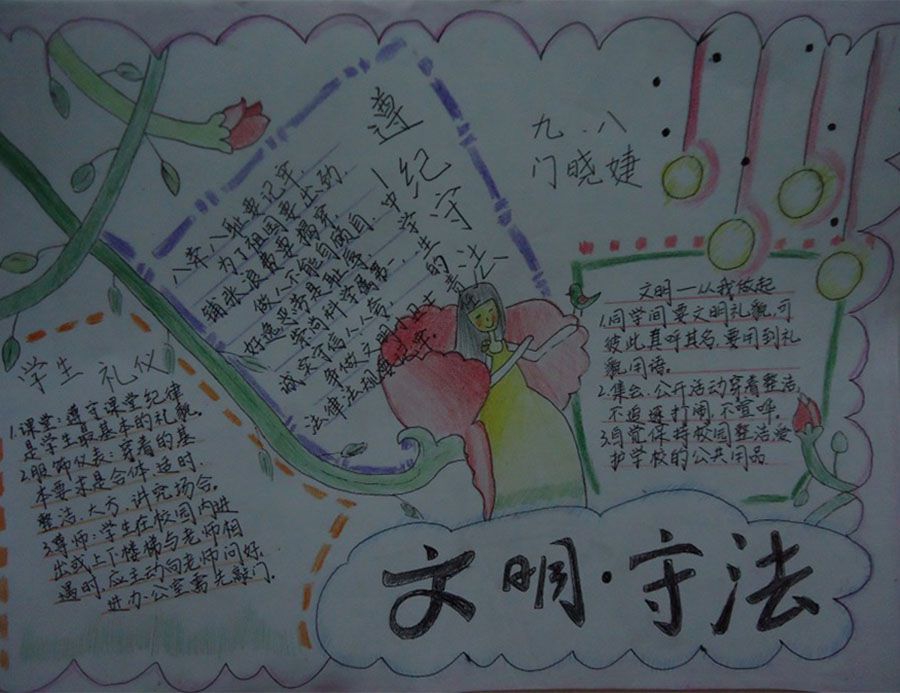 遵纪守法
八荣八耻要记牢，
为了祖国要出劲．
铺张浪费要摒弃，
做人不能自两目．中学生的责
好逸恶劳是耻辱，
崇尚科学属第一，
诚实守信人人夸，
争做文明小卫士
法律法规要记牢
九．八
门晓婕
文明—从我做起
1.同学间要文明礼貌，可
彼此直呼其名，要用到礼
貌用语。
2.集会、公开活动穿着整洁，
不追逐打闹，不喧哗．
3.自觉保持校园整洁，爱
护学校的公共用品
学生礼仪
1.课堂：遵守课堂纪律
是学生最基本的礼貌．
2.服饰仪表：穿着的基
本要求是合体．适时．
整洁．大方．讲究场合．
3.尊师：学生在校园内进
出或上下楼梯与老师相
遇时，应主动向老师问好．
进办公室需先敲门．
文明·守法